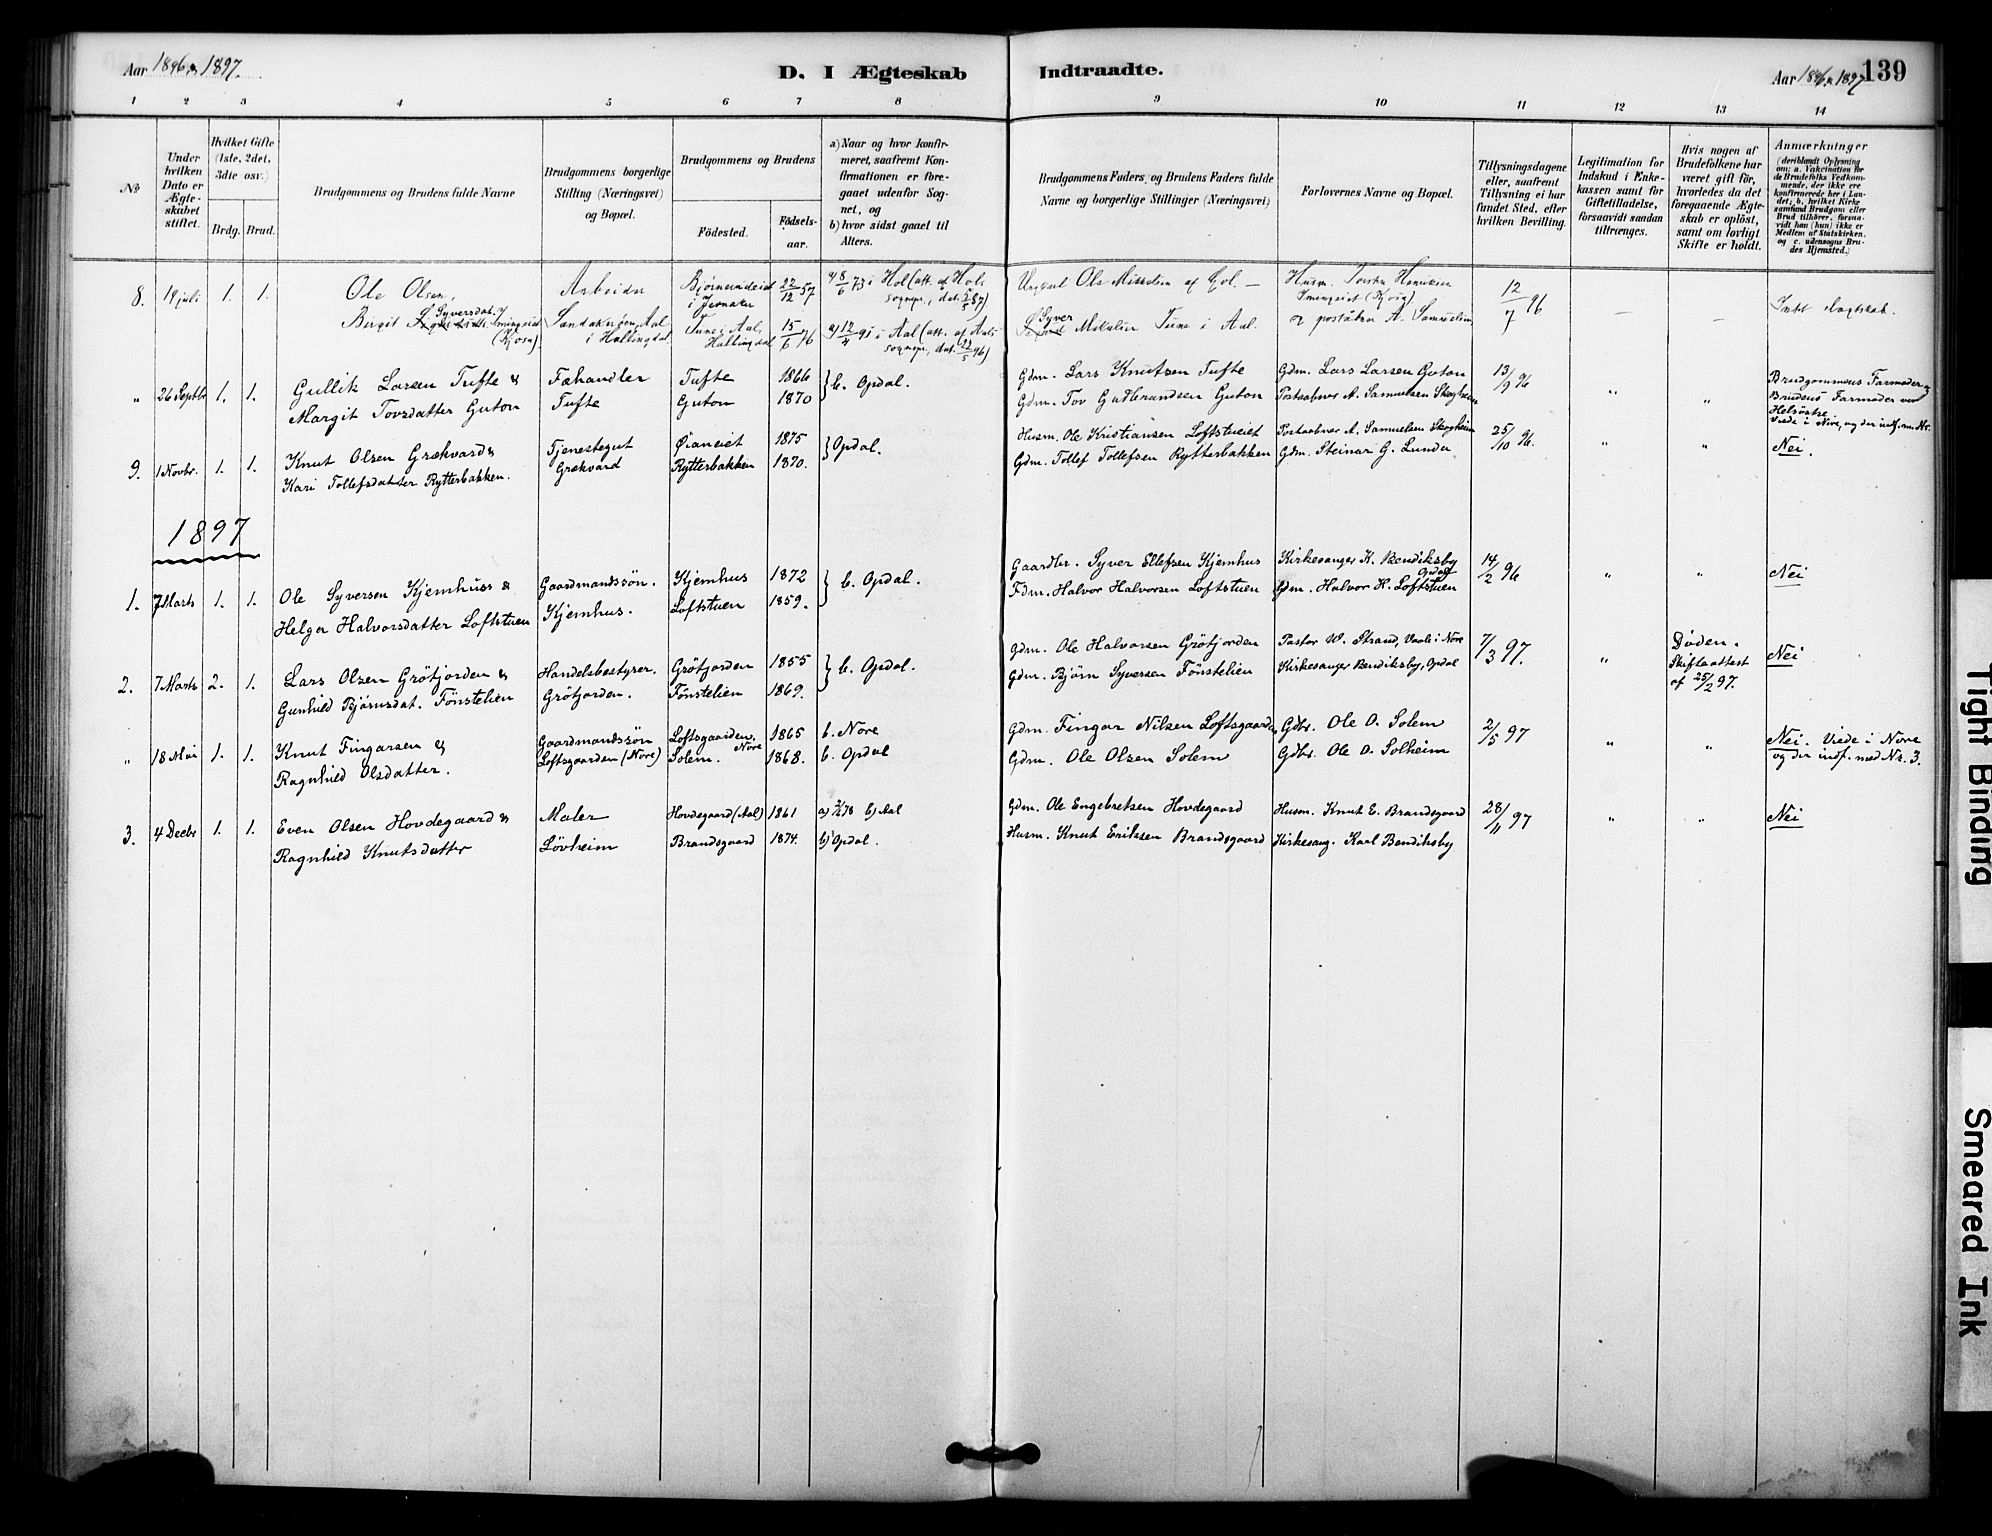 Aar 1896 & 1897.
D. I Ægteskab Indtraadte.
Aar 1896 & 1897
139
1 2 3 4 5 6 7 8 9 10 11 12 13 14
No
Under hvilken Dato er Ægteskabet stiftet.
Hvilket Gifte (1ste, 2det, 3die osv.)
Brdg. Brud.
Brudgommens og Brudens fulde Navne
Brudgommens borgerlige Stilling (Næringsvei) og Bopæl.
Brudgommens og Brudens
Födested.
Födsels-aar.
a) Naar og hvor konfirmeret, saafremt Konfirmationen er foregaaet udenfor Sognet, og
b) hvor sidst gaaet til Alters.
Brudgommens Faders, og Brudens Faders fulde Navne og borgerlige Stillinger (Næringsvei)
Forlovernes Navne og Bopæl.
Tillysningsdagene eller, saafremt Tillysning ei har fundet Sted, efter hvilken Bevilling.
Legitimation for Indskud i Enkekassen samt for Giftetilladelse, forsaavidt saadan tiltrænges.
Hvis nogen af Brudefolkene har været gift för, hvorledes da det foregaaende Ægteskab er oplöst, samt om lovligt Skifte er holdt.
Anmærkninger
(deriblandt Oplysning om: a. Vakcination for de Brudefolks Vedkommende, der ikke ere konfirmerede her i Landet; b. hvilket Kirkesamfund Brudgom eller Brud tilhörer, forsaavidt han (hun) ikke er Medlem af Statskirken, og c. udensogns Brudes Hjemsted.)
8. 19 juli 1. 1. Ole Olsen, Arbeider 22/12 57 a) 8/6 73 i Hol (att. af Hols Ole Mikkelsen af Hol. — Husm. 12/7 96 — —
Birgit Syversdat. i Hallingdal Tune i Aal, Hallingdal 15/6 76 a) 12/4 91 i Aal (att. af Aals Syver Mikelsen Tune i Aal. A. Samuelsen
" 26 Septbr 1. 1. Gullik Larsen Tufte & Fæhandler Tufte 1866 b. Opdal. Gdm. Lars Knutsen Tufte Gdm. Lars Larsen Guton 13/9 96 " " Brudgommens Farmoder &
Margit Tovsdatter Guton Tufte Guton 1870 Gdm. Tov Gulbrandsen Guton Postaabner A. Samuelsen Skogheim Brudens Farmoder var
Helsöstre.
Viede i Nore, og der indf. med Nr.
9. 1 Novbr. 1. 1. Knut Olsen Grækvard & Tjenestegut Öianeiet 1875 Opdal. Husm. Ole Kristiansen Loftstueiet Postaabner A. Samuelsen Skogheim 25/10 96. " " Nei.
Kari Tollefsdatter Rytterbakken. Grækvard Rytterbakken 1870. Gdm. Tollef Tollefsen Rytterbakken Gdm. Steinar G. Lunde
1897
1. 7 Marts 1. 1. Ole Syversen Kjemhus & Gaardmandssön. Kjemhus 1872 b. Opdal. Gaardbr. Syver Ellefsen Kjemhus Kirkesanger K. Bendiksby Opdal 14/2 96 " " Nei
Helge Halvorsdatter Loftstuen Kjemhus. Loftstuen 1859. Fdm. Halvor Halvorsen Loftstuen Gdm. Halvor H. Loftstuen
2. 7 Marts 2. 1. Lars Olsen Gröfjorden & Handelsbestyrer. Gröfjorden 1855 b. Opdal. Gdm. Ole Halvorsen Gröfjorden Pastor W. Strand, Vaale i Nore 7/3 97. " Döden. Nei
Gunhild Björnsdat. Fönstelien Gröfjorden. Fönstelien 1869. Gdm. Björn Syversen Fönstelien Kirkesanger Bendiksby, Opdal Skifteattest
af 25/2 97.
" 18 Mai 1. 1. Knut Fingarsen & Gaardmandssön Loftsgaarden, Nore 1865 b. Nore Gdm. Fingar Nilsen Loftsgaarden Gdbr. Ole O. Solem 2/5 97 " " Nei. Viede i Nore
Ragnhild Olsdatter. Loftsgaarden (Nore) Solem. 1868. b. Opdal Gdm. Ole Olsen Solem Gdbr. Ole O. Solheim og der indf. med Nr. 3.
3. 4 Decbr 1. 1. Even Olsen Hovdegaard & Maler Hovdegaard (Aal) 1861 b) Aal Gdm. Ole Engebretsen Hovdegaard Husm. Knut E. Brandsgaard 28/11 97 " " Nei
Ragnhild Knutsdatter Lövheim Brandsgaard 1874. b) Opdal. Husm. Knut Eriksen Brandsgaard Kirkesang. Karl Bendiksby
Tight Binding
Smeared Ink